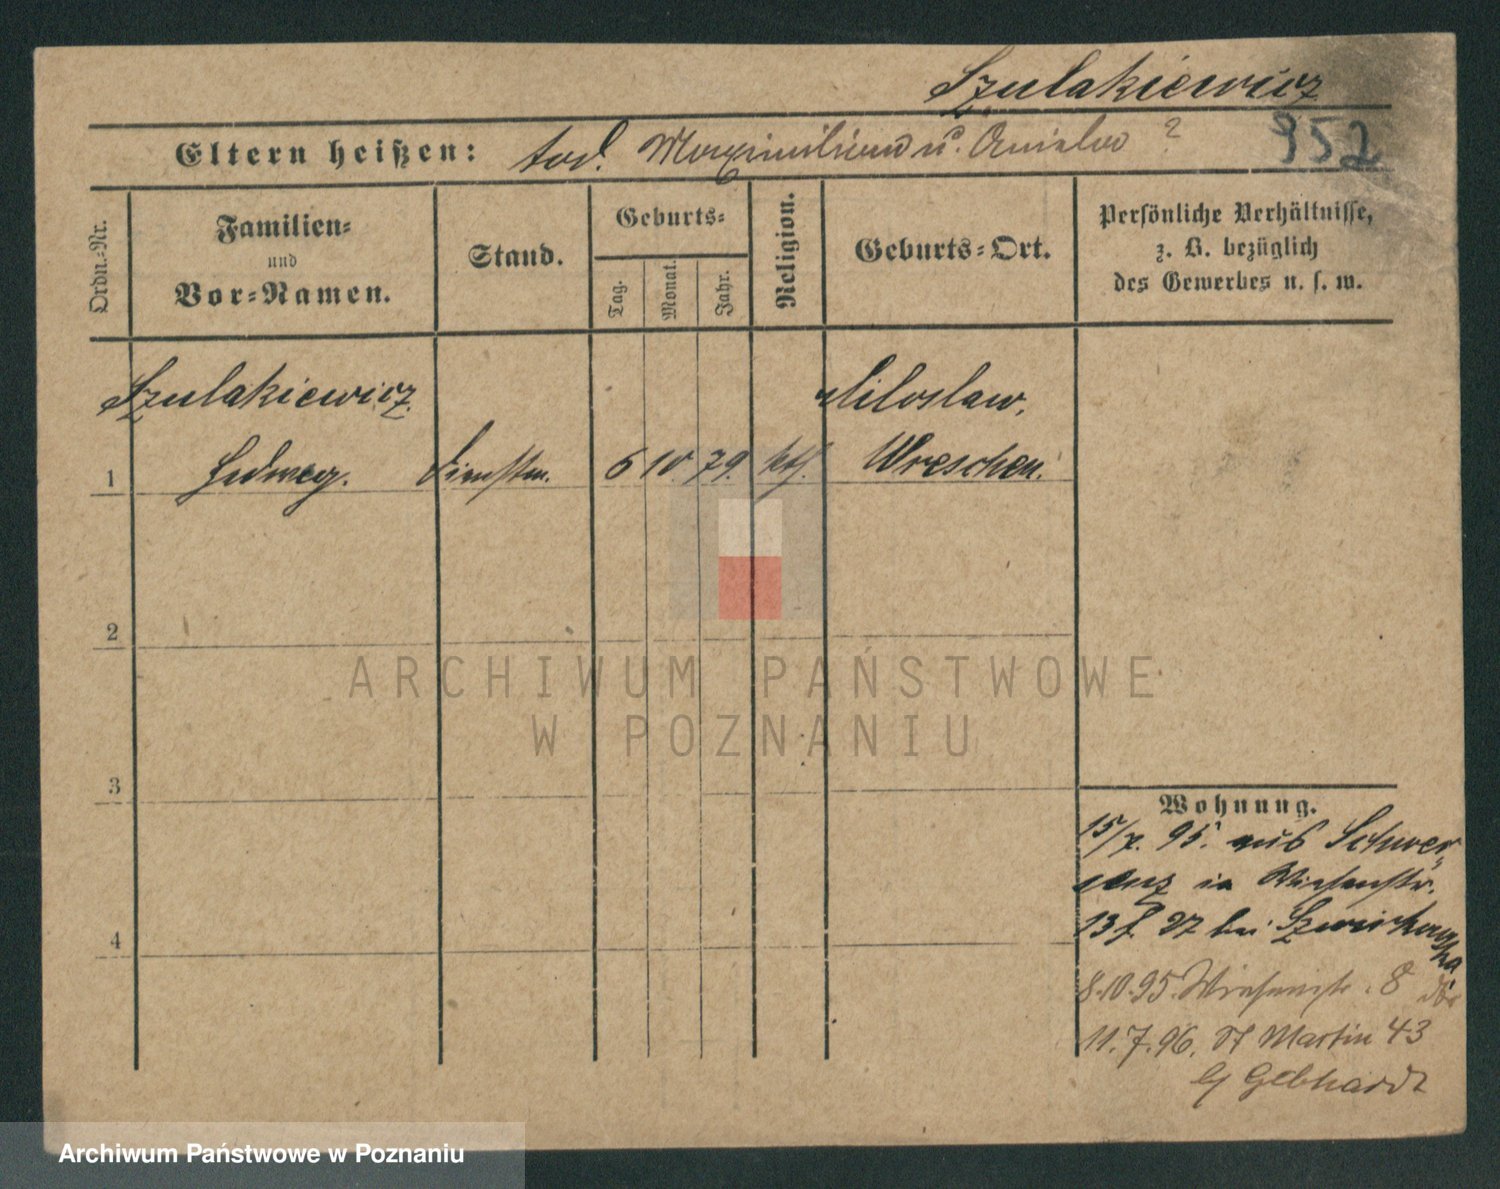 Szulakiewicz
Eltern heißen: tod. Maximilian u. ?
952
Ordn.-Nr.
Familien-
und
Vor-Namen.
Stand.
Geburts-
Tag.
Monat.
Jahr.
Religion.
Geburts-Ort.
Persönliche Verhältnisse,
z. B. bezüglich
des Gewerbes u. s. w.
Szulakiewicz
Miloslaw,
1 Hedwig. Dienstm. 6 10. 79. kth. Wreschen.
2
3
4
Wohnung.
15/7. 95. aus Schwer-
senz in Wiesenstr.
13 bei
8.10.95. Wiesenstr. 8
11.7.96. St Martin 43
Gebhardt
ARCHIWUM PAŃSTWOWE
W POZNANIU
Archiwum Państwowe w Poznaniu